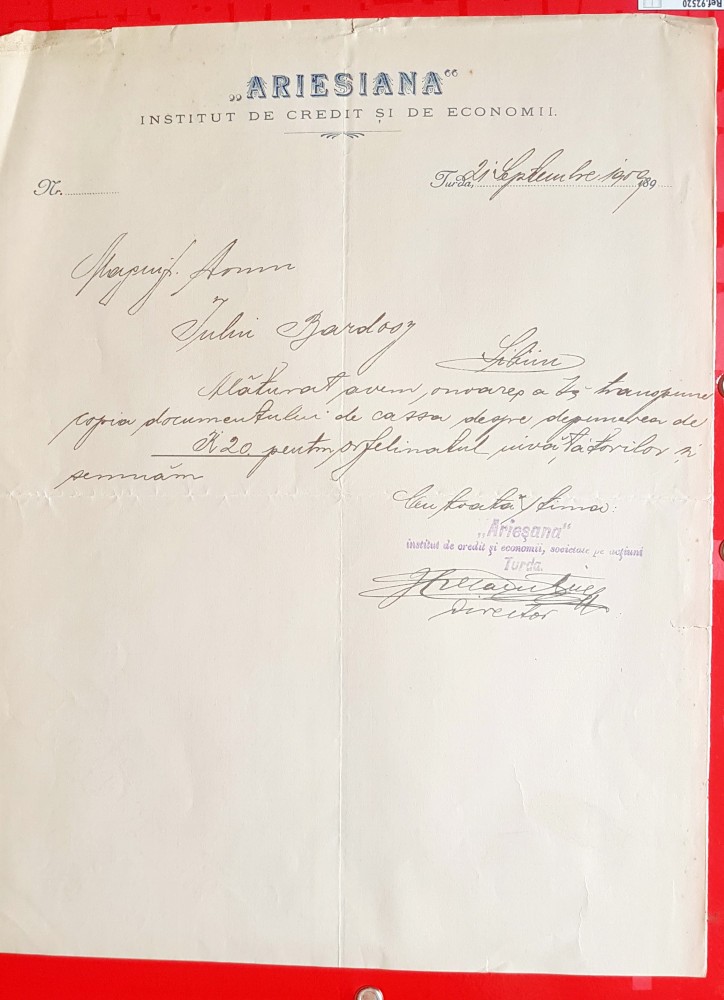 „ARIESIANA“
INSTITUT DE CREDIT ȘI DE ECONOMII.
Nr.
Turda, 21 Septembre 1909 189
Magnif. Domn
Iuliu Bardosy
Sibiiu
Alăturat avem onoarea a Vă transpune
copia documentului de cassa despre depunerea de
K 20 pentru orfelinatul învățătorilor și
semnăm
Cu toată stima:
„Arieșana“
institut de credit și economii, societate pe acțiuni
Turda.
Director
Ref.92520